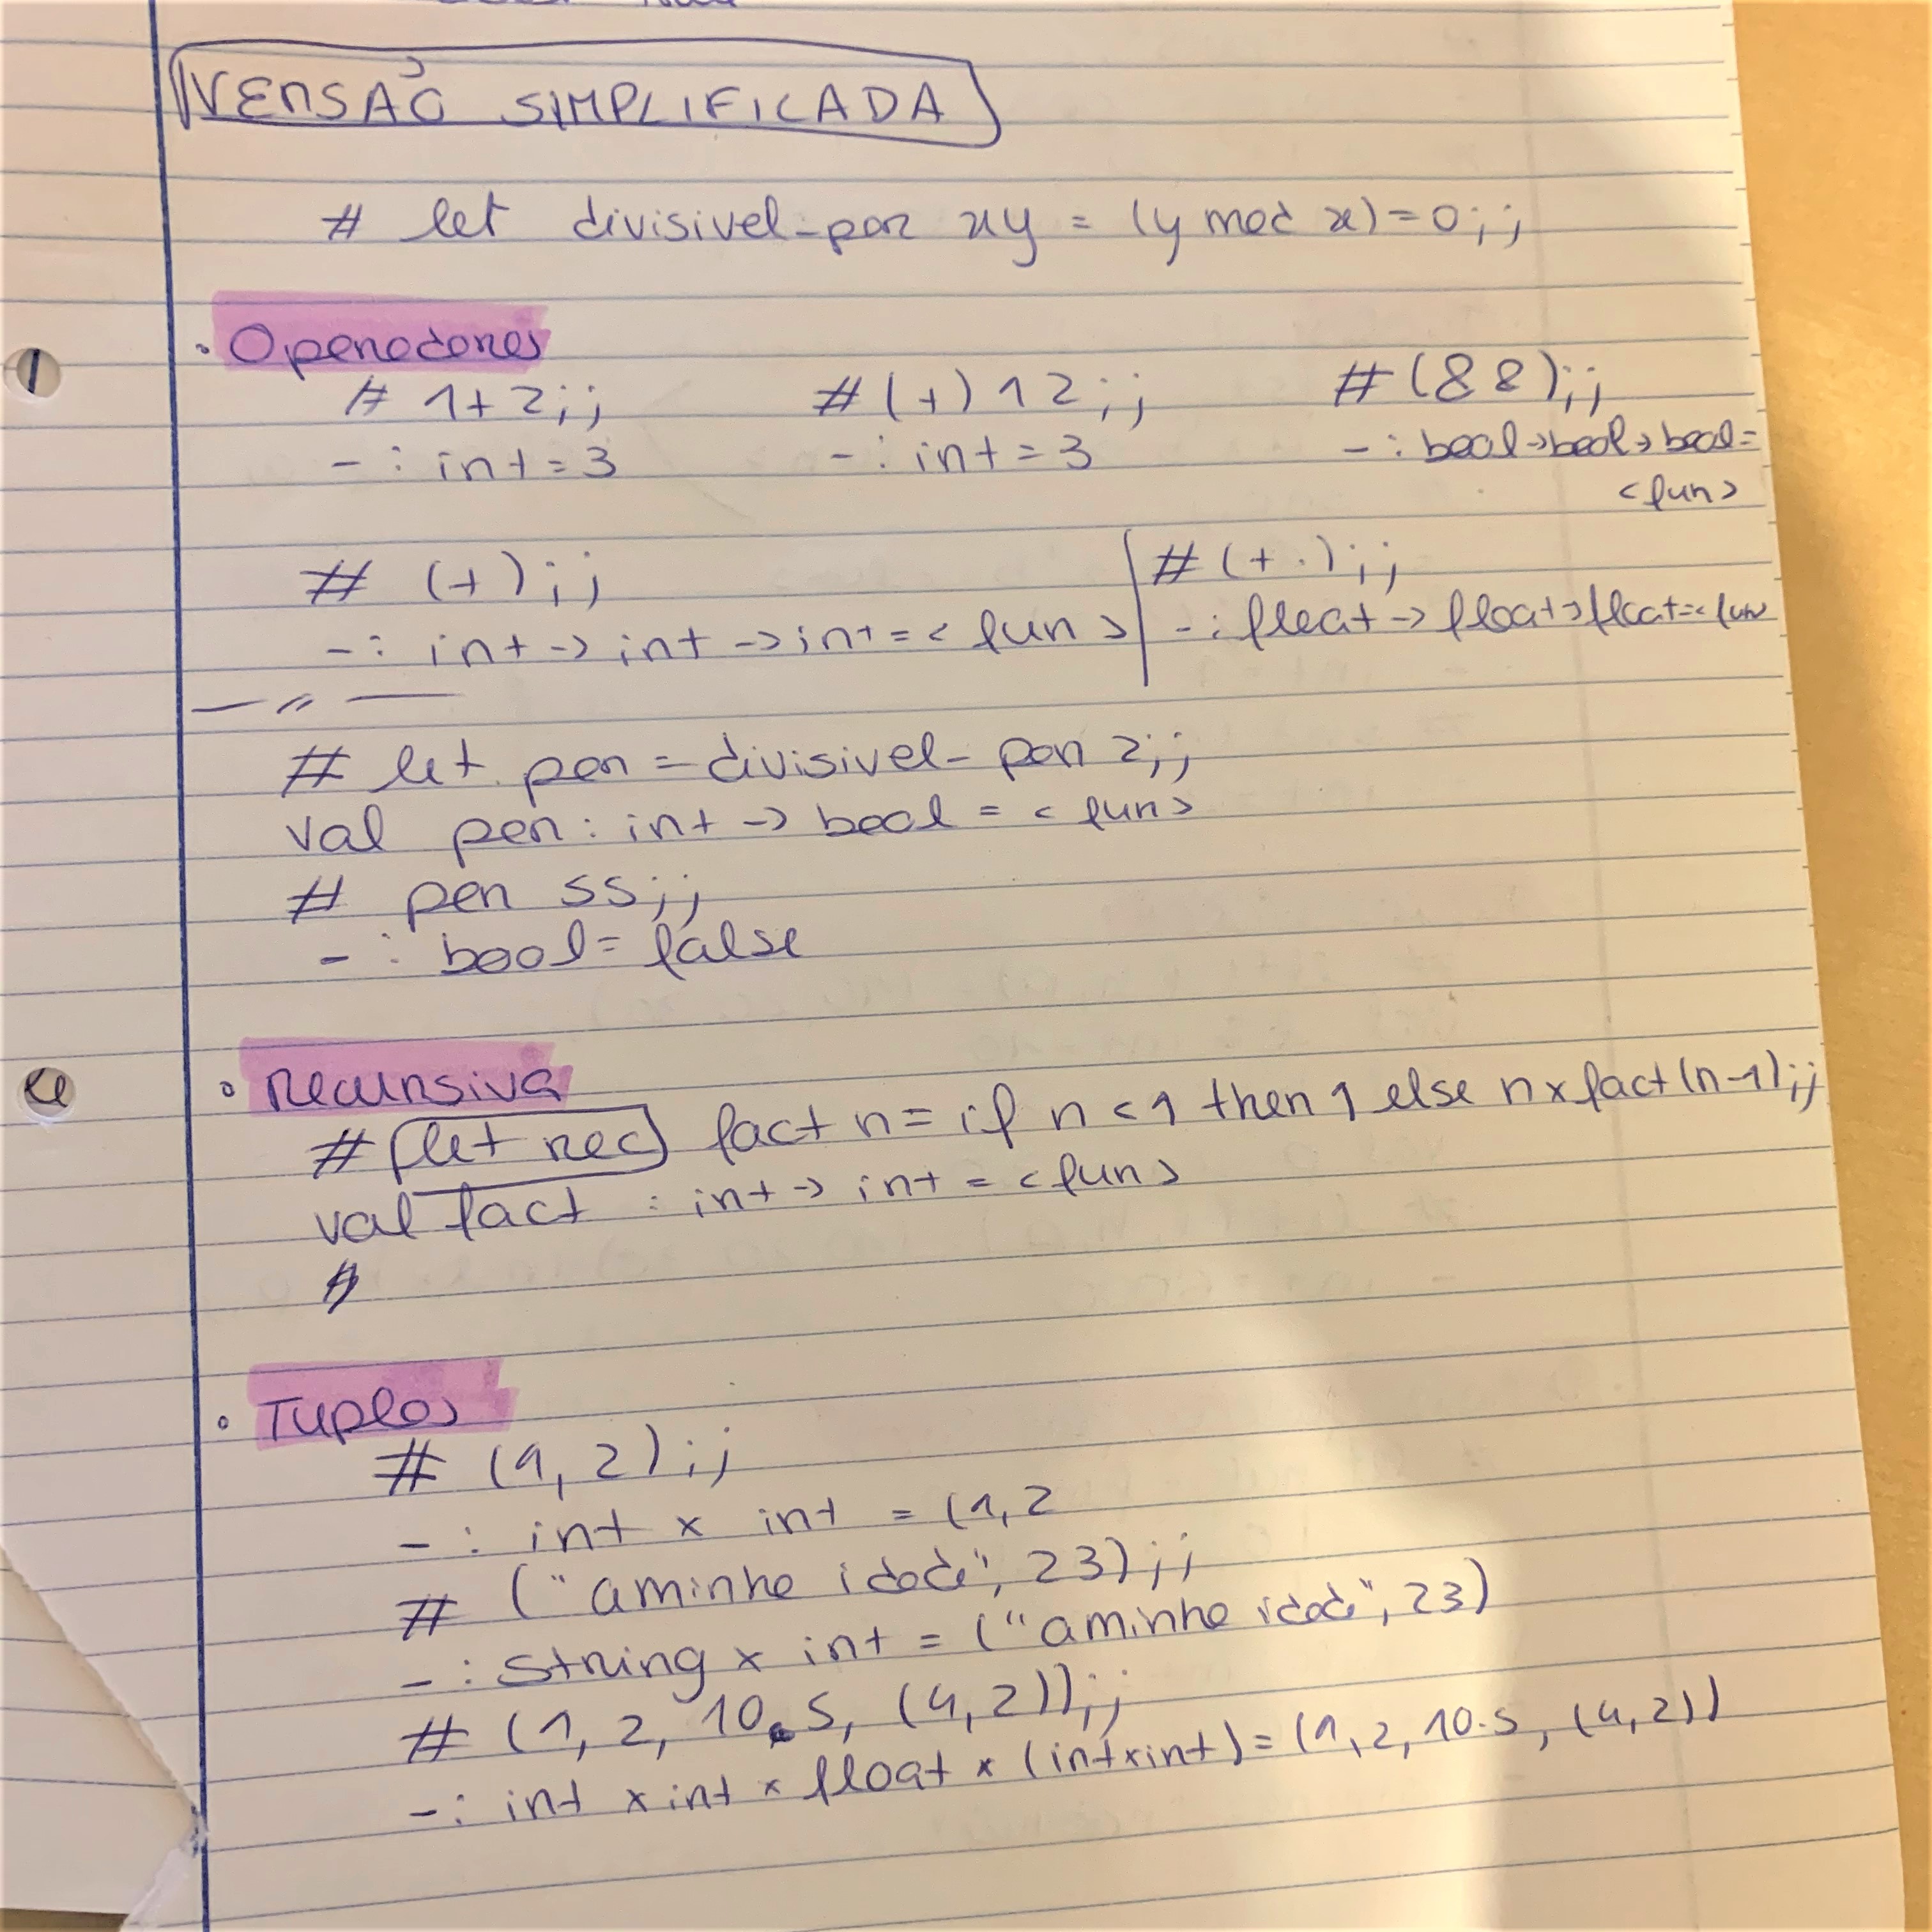 VERSÃO SIMPLIFICADA
# let divisivel_por x y = (y mod x) = 0;;
• Operadores
# 1+2;; # (+) 1 2;; # (&&);;
- : int = 3 - : int = 3 - : bool -> bool -> bool =
<fun>
# (+);; # (+.);;
- : int -> int -> int = <fun> - : float -> float -> float = <fun
— // —
# let par = divisivel_por 2;;
val par : int -> bool = <fun>
# par 55;;
- : bool = false
• Recursiva
# let rec fact n = if n < 1 then 1 else n x fact (n-1);;
val fact : int -> int = <fun>
#
• Tuplos
# (1, 2);;
- : int x int = (1, 2
# ("a minha idade", 23);;
- : string x int = ("a minha idade", 23)
# (1, 2, 10.5, (4, 2));;
- : int x int x float x (int x int) = (1, 2, 10.5, (4, 2))